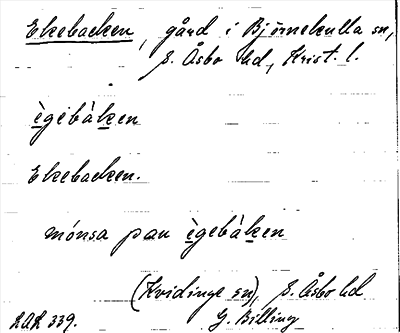 Ekebacken, gård i Björnekulla sn,
S. Åsbo hd, Krist. l.
ègebàken
Ekebacken.
mónsa pau ègebàken
(Kvidinge sn), S. Åsbo hd
RAR 339. G. Billing